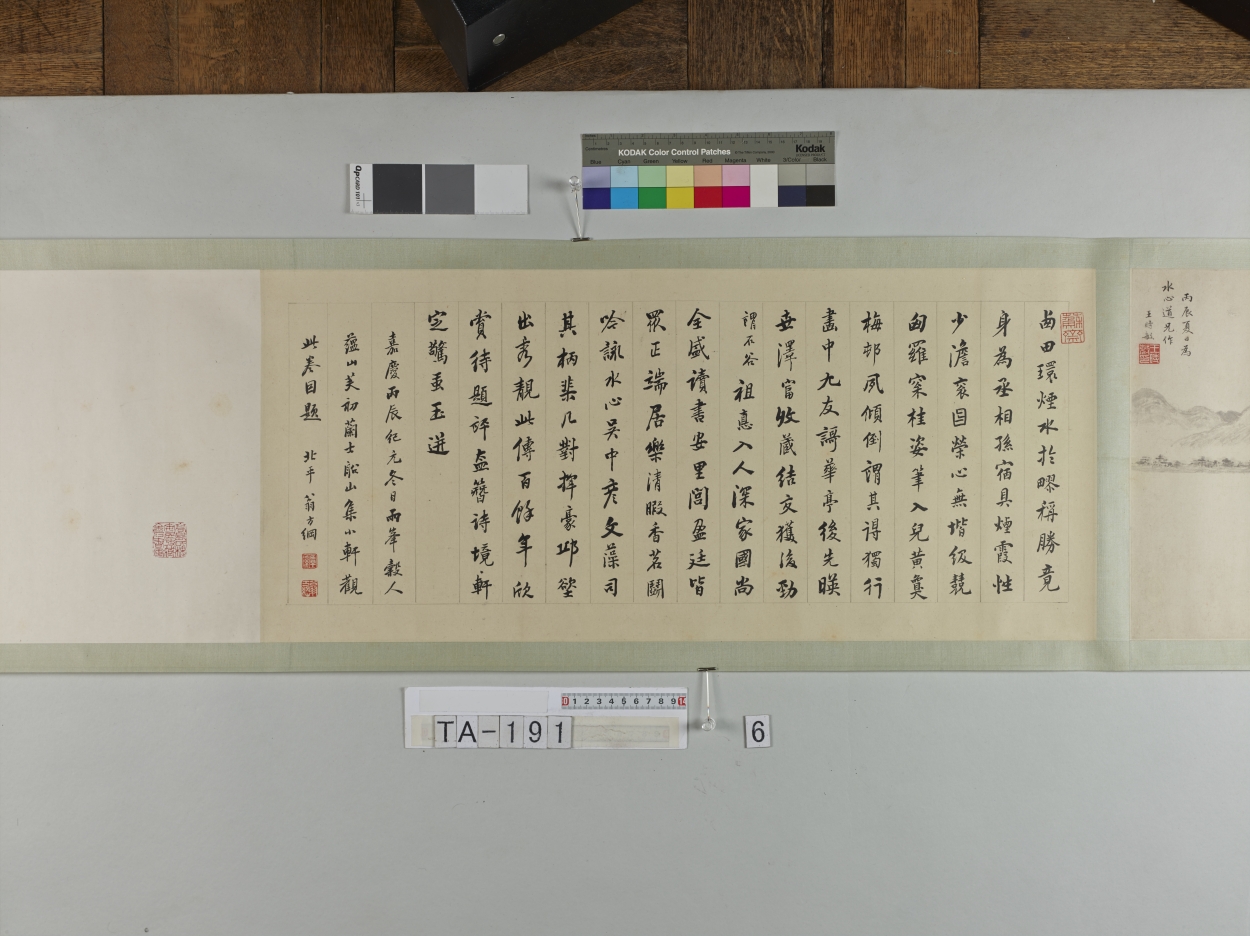 丙辰夏日為
水心道兄作
王時敏
西田環煙水於鄝稱勝竟
身為丞相孫宿具煙霞性
少澹衮因榮心無堦級競
匃羅窠桂姿筆入兒黃夐
梅邨夙傾倒謂其得獨行
畫中九友謌華亭後先暎
毋澤富收藏結交獲後勁
謂石谷 祖悳入人深家國尚
全盛讀書安里閭盈廷皆
眾正端居樂清暇香茗鬭
吟詠水心吴中彥文藻司
其柄棐几對揮豪邱壑
出秀靚此傳百餘年欣
賞待題評盍簪詩境軒
定驚虿玉迸
嘉慶丙辰紀元冬日兩峯 穀人
蘊山芙初蘭士船山集小軒觀
此卷因題 北平 翁方綱
QPCARD 101
KODAK Color Control Patches
Kodak
Blue Cyan Green Yellow Red Magenta White 3/Color Black
0 1 2 3 4 5 6 7 8 9
TA-191
6